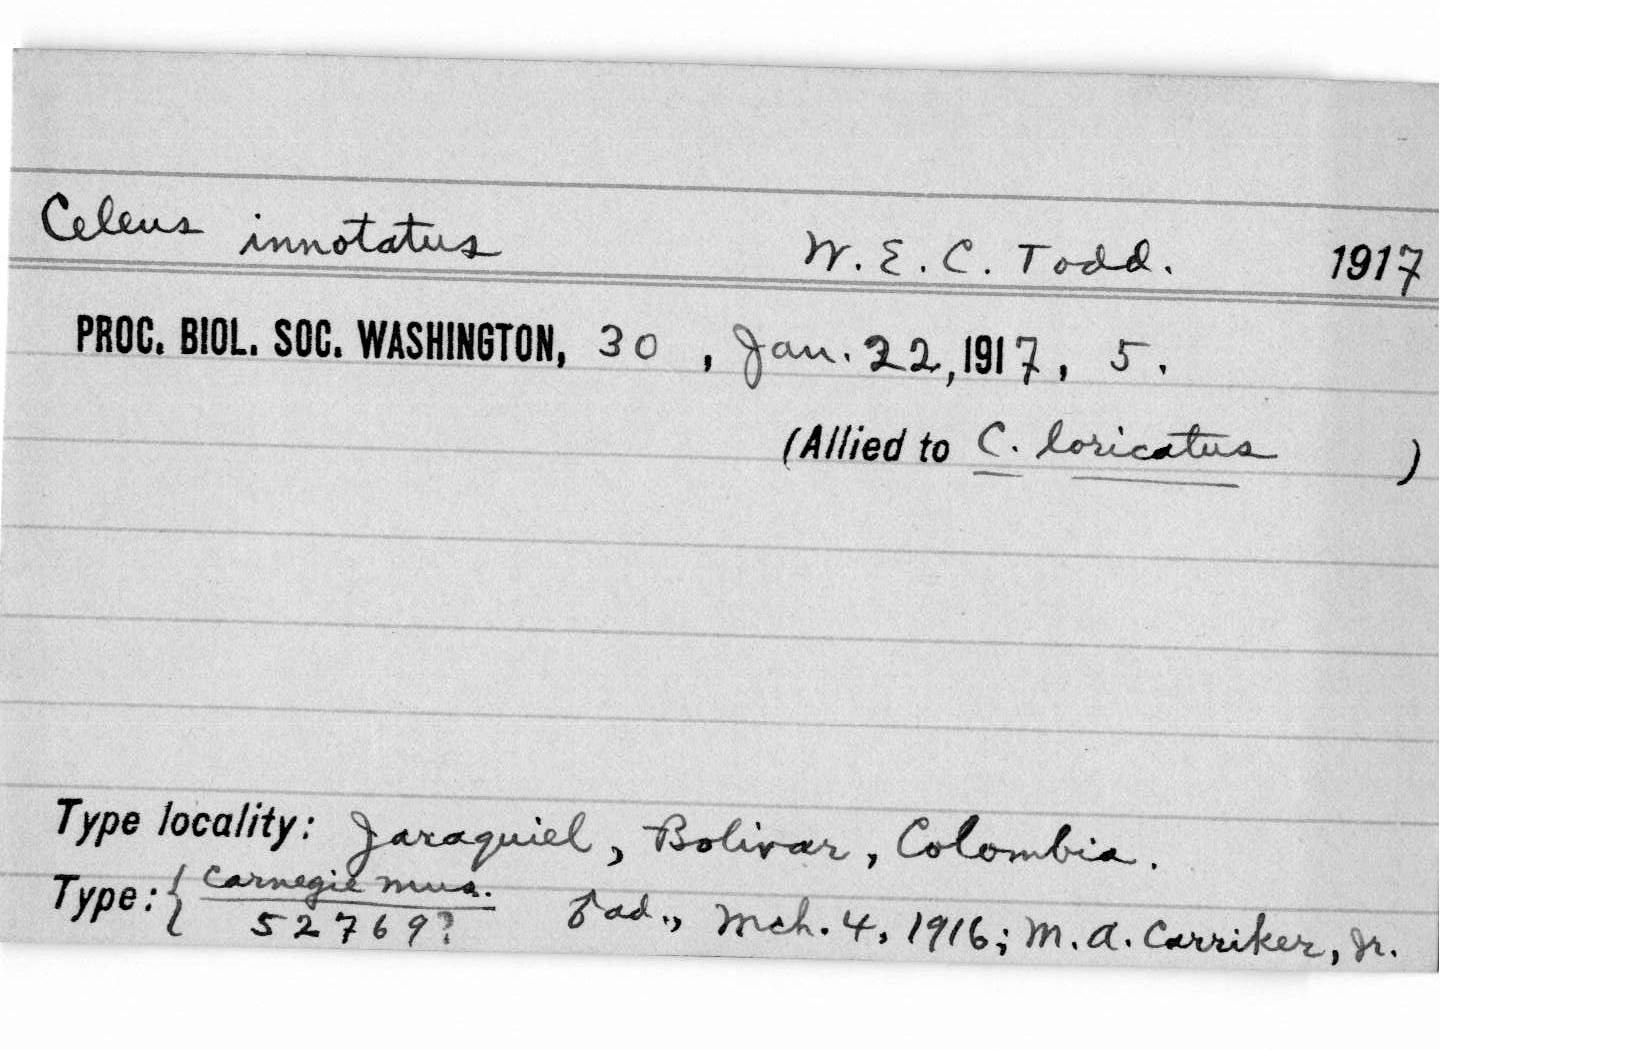 Celeus innotatus W. E. C. Todd. 1917
PROC. BIOL. SOC. WASHINGTON, 30, Jan. 22, 1917, 5.
(Allied to C. loricatus )
Type locality: Jaraquiel, Bolivar, Colombia.
Type: { Carnegie Mus.
52769? ♂ ad., Mch. 4, 1916; M. A. Carriker, Jr.